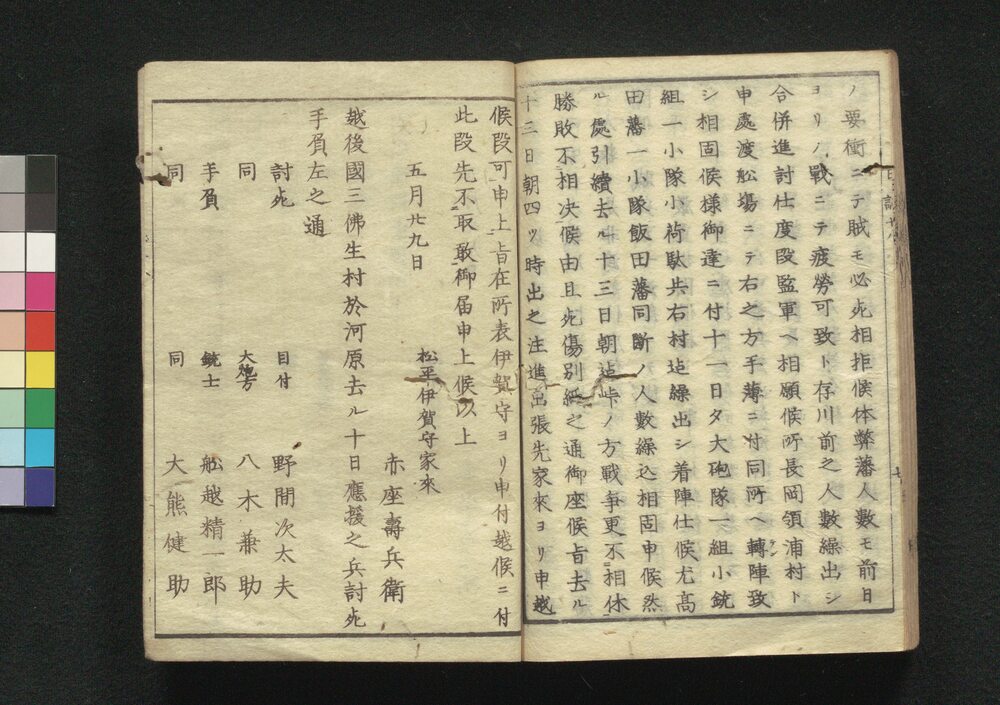 ノ要衝ニテ賊モ必死相拒候体弊藩人数モ前日
ヨリノ戰ニテ疲勞可致ト存川前之人數繰出シ
合併進討仕度段監軍ヘ相願候所長岡領浦村ト
申處渡舩塲ニテ右之方手薄ニ付同所ヘ轉陣致
シ相固候様御達ニ付十一日夕大砲隊一組小銃
組一小隊小荷駄共右村迠繰出シ着陣仕候尤高
田藩一小隊飯田藩同斷ノ人數繰込相固申候然
ル處引續去ル十三日朝迠峠ノ方戰争更不相休
勝敗不相决候由且死傷別紙之通御座候旨去ル
十三日朝四ツ時出之注進出張先家來ヨリ申越
候段可申上旨在所表伊賀守ヨリ申付越候ニ付
此段先不取敢御届申上候以上
五月廿九日
松平伊賀守家來
赤座壽兵衛
越後國三佛生村於河原去ル十日應援之兵討死
手負左之通
討死 目付 野間次太夫
同 大炮方 八木兼助
手負 銃士 舩越精一郎
同 同 大熊健助